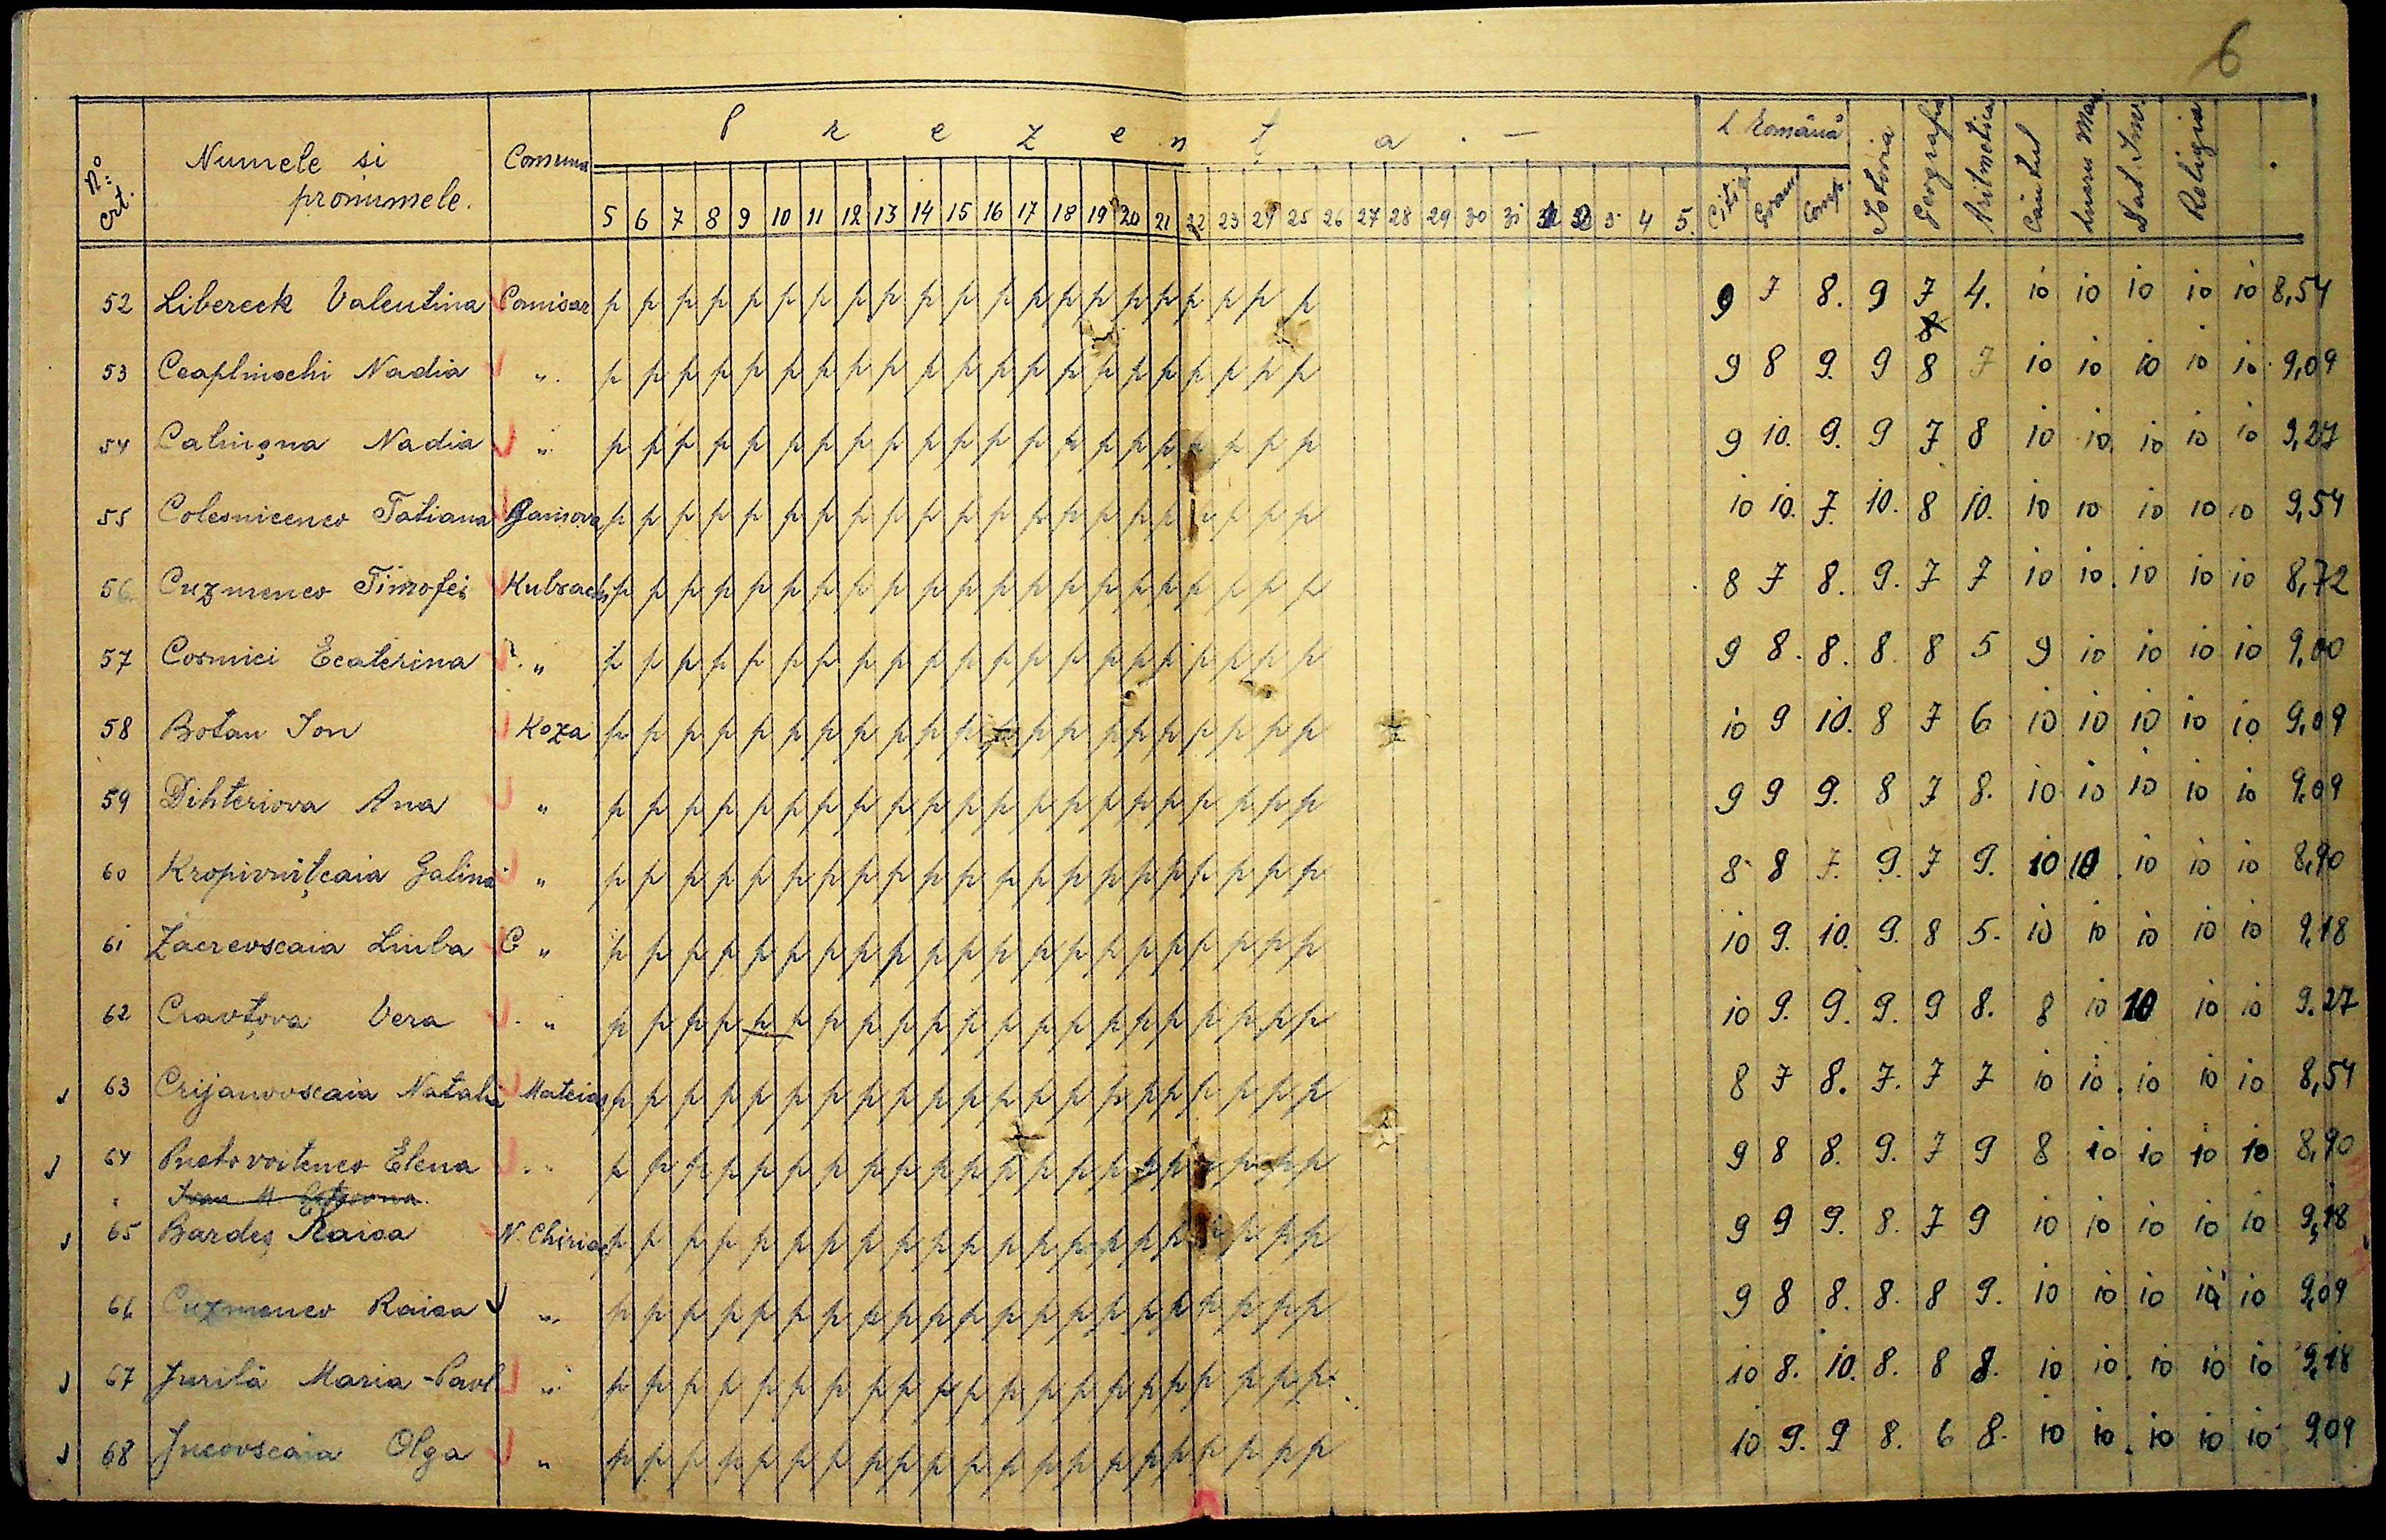 6
No: crt. Numele si pronumele. Comuna Prezența. — L Română Istoria Geografia Aritmetica Cântul Lucru Man. Religia
5 6 7 8 9 10 11 12 13 14 15 16 17 18 19 20 21 22 23 24 25 26 27 28 29 30 31 3 4 5. Citir Gram Comp.
52 Libereck Valentina Comisar p p p p p p p p p p p p p p p p p p p p p 9 7 8. 9 7 4. 10 10 10 10 10 8,54
8
53 Ceaplinschi Nadia „ p p p p p p p p p p p p p p p p p p p p p 9 8 9. 9 8 7 10 10 10 10 10. 9,09
54 Calinșna Nadia „ p p p p p p p p p p p p p p p p p p p p p 9 10. 9. 9 7 8 10 10. 10 10 10 9,27
55 Colesnicenco Tatiana p p p p p p p p p p p p p p p p p p p p p 10 10. 7. 10. 8 10. 10 10 10 10 10 9,54
56 Cuzmenco Timofei Kubrach p p p p p p p p p p p p p p p p p p p p p 8 7 8. 9. 7 7 10 10. 10 10 10 8,72
57 Cosmici Ecaterina „ p p p p p p p p p p p p p p p p p p p p p 9 8. 8. 8. 8 5 9 10 10 10 10 9,00
58 Botan Ion Koza p p p p p p p p p p p p p p p p p p p p p 10 9 10. 8 7 6 10 10 10 10 10 9,09
59 Dihteriova Ana „ p p p p p p p p p p p p p p p p p p p p p 9 9 9. 8 7 8. 10 10 10 10 10 9,09
60 Kropivnițcaia Galina „ p p p p p p p p p p p p p p p p p p p p p 8 8 7. 9. 7 9. 10 10. 10 10 10 8,90
61 Zacrevscaia Liuba C „ p p p p p p p p p p p p p p p p p p p p p 10 9. 10. 9. 8 5. 10 10 10 10 10 9,18
62 Cravțova Vera „ p p p p p p p p p p p p p p p p p p p p p 10 9. 9. 9. 9 8. 8 10 10 10 10 9.27
63 Crijanovscaia Natalia Mateias p p p p p p p p p p p p p p p p p p p p p 8 7 8. 7. 7 7 10 10. 10 10 10 8,54
64 Pustovoitenco Elena „ p p p p p p p p p p p p p p p p p p p p p 9 8 8. 9. 7 9 8 10 10 10 10 8,90
65 Bardeș Raisa N. Chiriac p p p p p p p p p p p p p p p p p p p p p 9 9 9. 8. 7 9 10 10 10 10 10 9,18
66 Cuzmenco Raisa „ p p p p p p p p p p p p p p p p p p p p p 9 8 8. 8. 8 9. 10 10 10 10 10 9,09
67 Jurilă Maria-Pavl „ p p p p p p p p p p p p p p p p p p p p p 10 8. 10. 8. 8 8. 10 10. 10 10 10 9,18
68 Jucovscaia Olga „ p p p p p p p p p p p p p p p p p p p p p 10 9. 9 8. 6 8. 10 10. 10 10 10 9,09